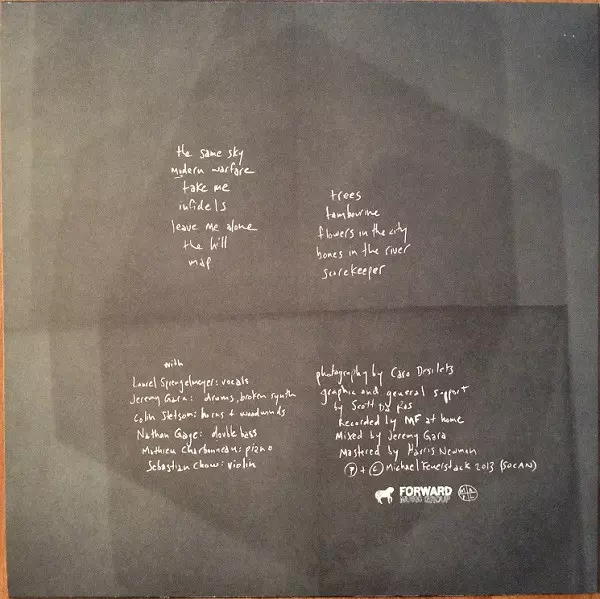 the same sky
modern warfare
take me
infidels
leave me alone
the hill
map
trees
tambourine
flowers in the city
bones in the river
scorekeeper
with
Laurel Sprengelmeyer: vocals
Jeremy Gara: drums, broken synth
Colin Stetson: horns + woodwinds
Nathan Gage: double bass
Mathieu Charbonneau: piano
Sebastian Chow: violin
photography by Caro Desilets
graphic and general support
by Scott Da Ros
Recorded by MF at home
Mixed by Jeremy Gara
Mastered by Harris Newman
Ⓟ + © Michael Feuerstack 2013 (SOCAN)
FORWARD
MUSIC GROUP